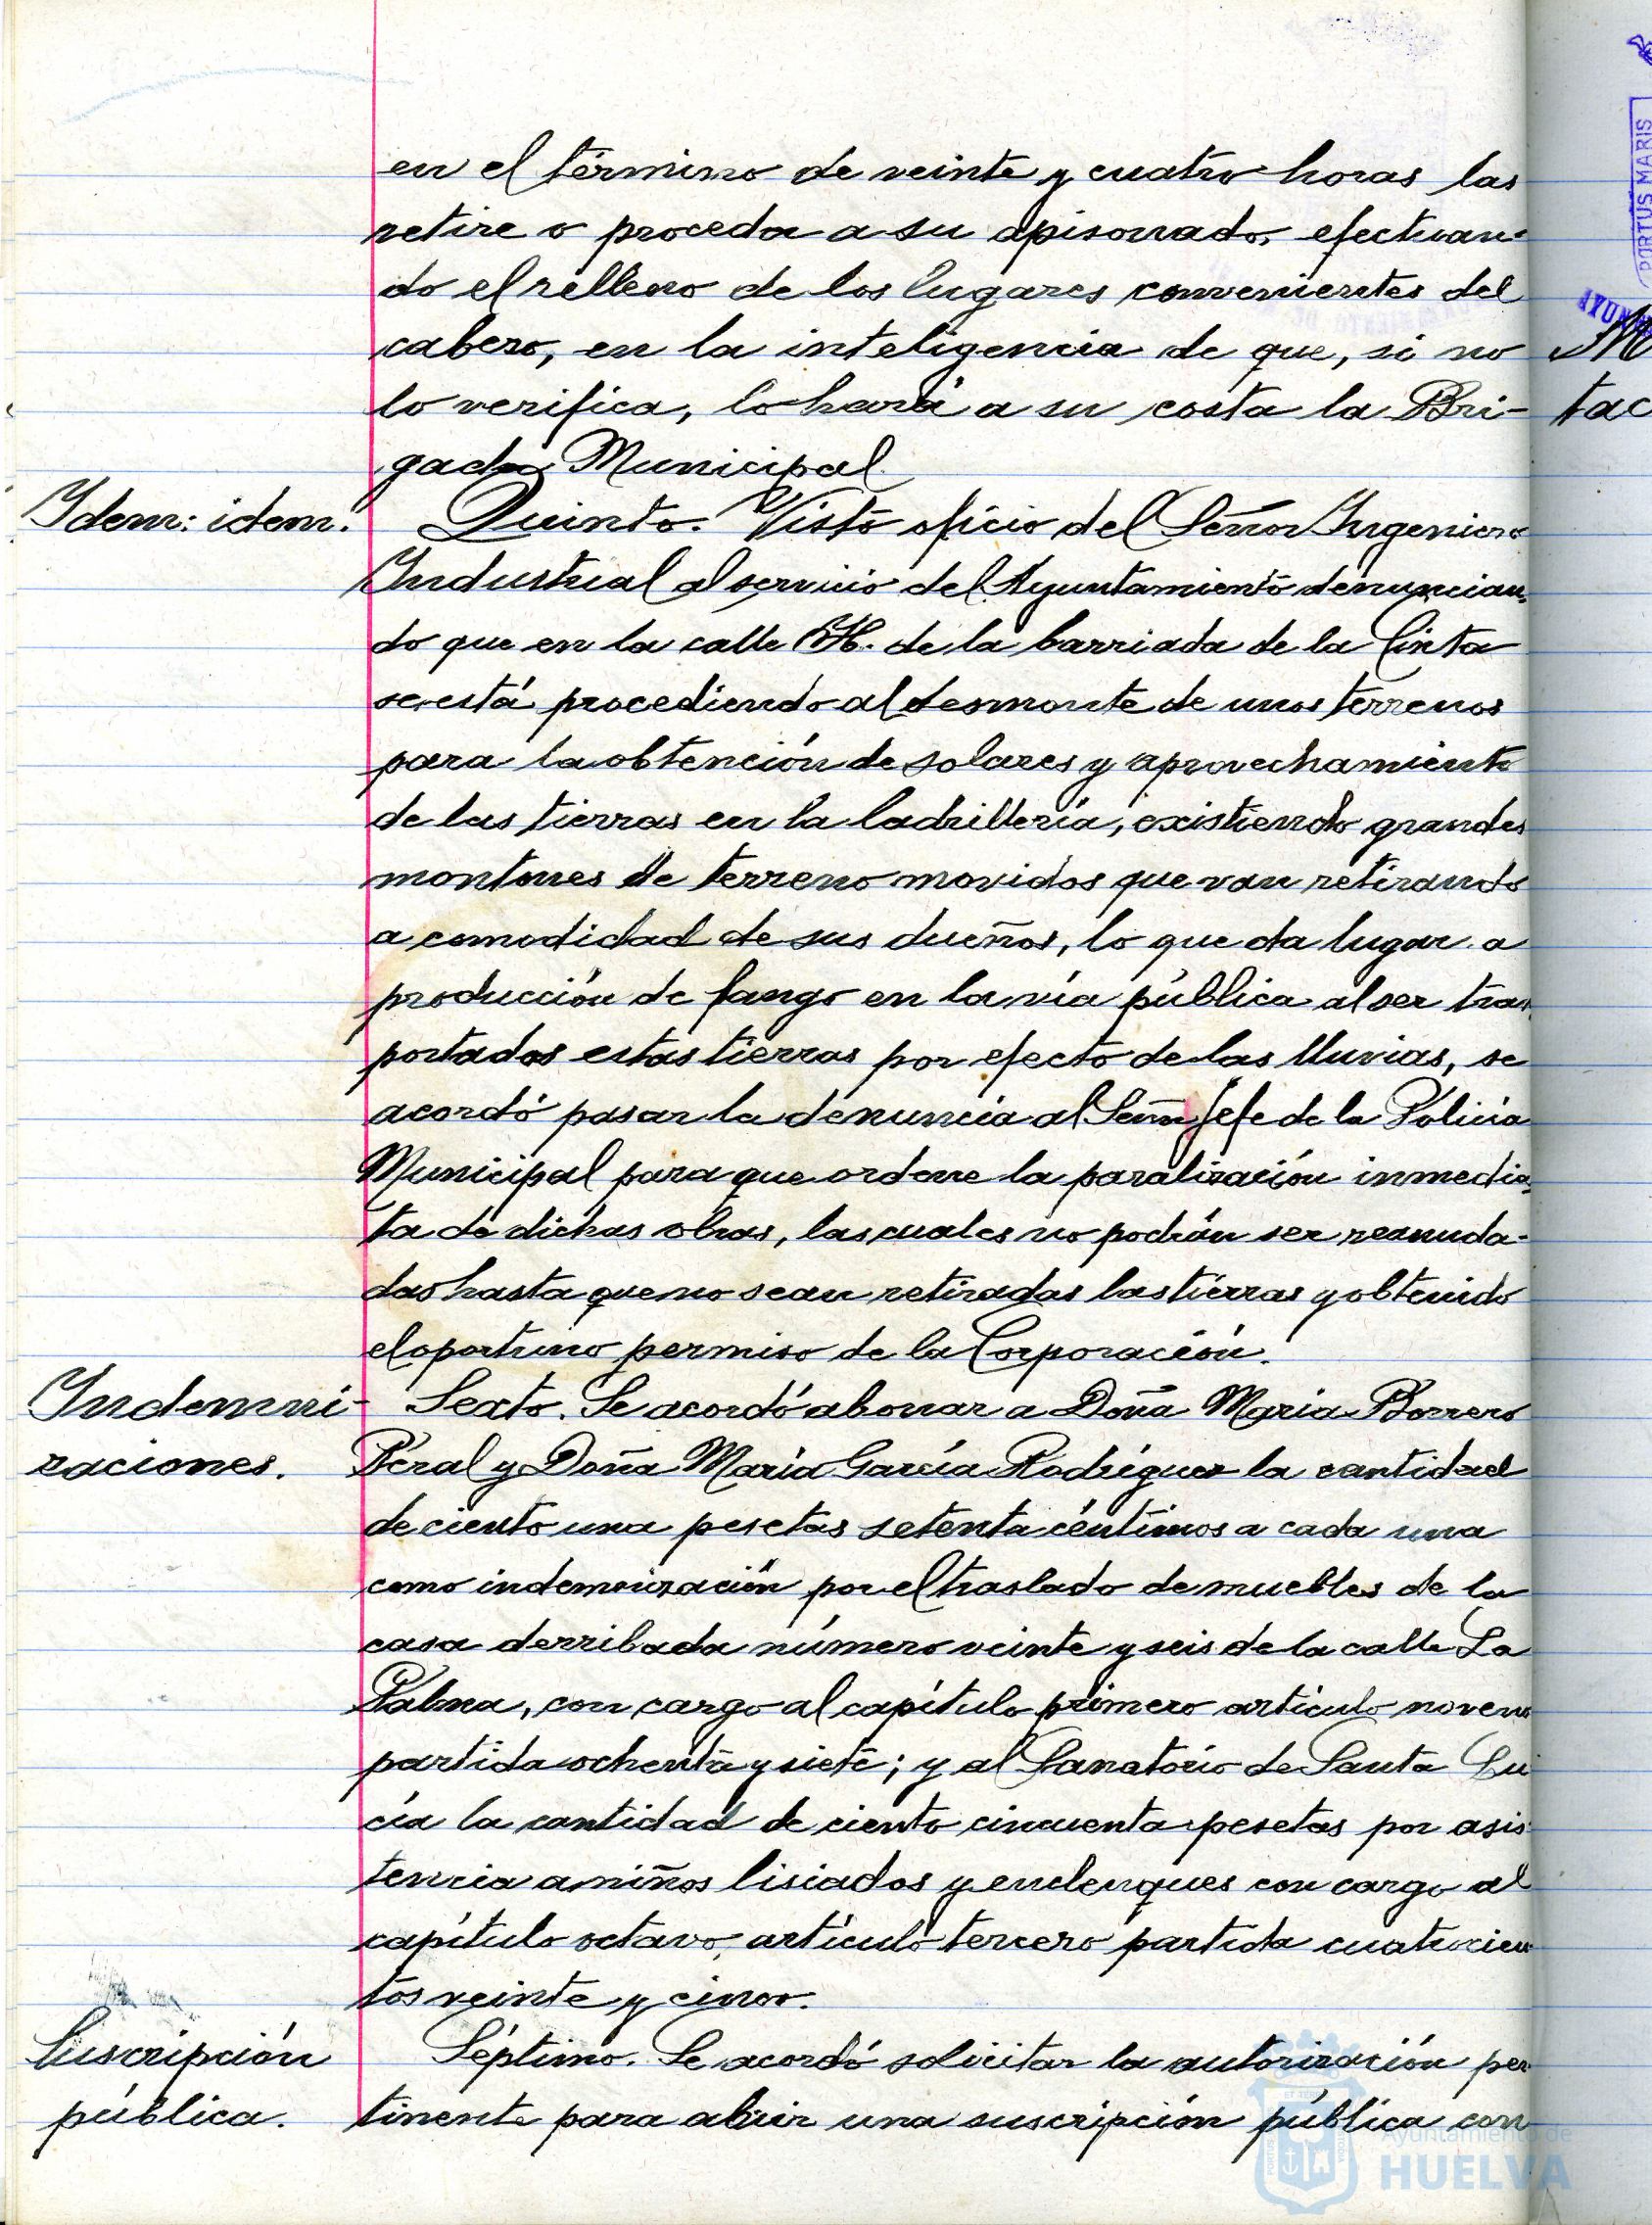 en el término de veinte y cuatro horas las
retire o proceda a su apisonado, efectuan-
do el relleno de los lugares convenientes del
cabezo, en la inteligencia de que, si no
lo verifica, lo hará a su costa la Bri-
gada Municipal.
Idem: idem.
Quinto. Visto oficio del Señor Ingeniero
Industrial al servicio del Ayuntamiento denuncian-
do que en la calle H. de la barriada de la Cinta
se está procediendo al desmonte de unos terrenos
para la obtención de solares y aprovechamiento
de las tierras en la ladrillería, existiendo grandes
montones de terreno movidos que van retirando
a comodidad de sus dueños, lo que da lugar a
producción de fango en la vía pública al ser tras-
portados estas tierras por efecto de las lluvias, se
acordó pasar la denuncia al Señor Jefe de la Policía
Municipal para que ordene la paralización inmedia-
ta de dichas obras, las cuales no podrán ser reanuda-
das hasta que no sean retiradas las tierras y obtenido
el oportuno permiso de la Corporación.
Indemni-
zaciones.
Sexto. Se acordó abonar a Doña María Borrero
Peral y Doña María García Rodríguez la cantidad
de ciento una pesetas setenta céntimos a cada una
como indemnización por el traslado de muebles de la
casa derribada número veinte y seis de la calle La
Palma, con cargo al capítulo primero artículo noveno
partida ochenta y siete; y al Sanatorio de Santa Lu
cía la cantidad de ciento cincuenta pesetas por asis-
tencia a niños lisiados y enclenques con cargo al
capítulo octavo, artículo tercero partida cuatrocien
tos veinte y cinco.
Suscripción
pública.
Séptimo. Se acordó solicitar la autorización per
tinente para abrir una suscripción pública con
PORTUS MARIS
AYUN
M
tac
Ayuntamiento de
HUELVA